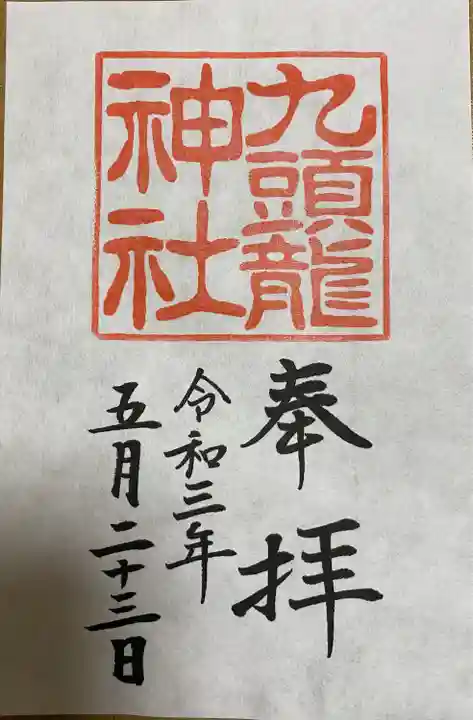 九頭龍
神社
奉拝
令和三年
五月二十三日